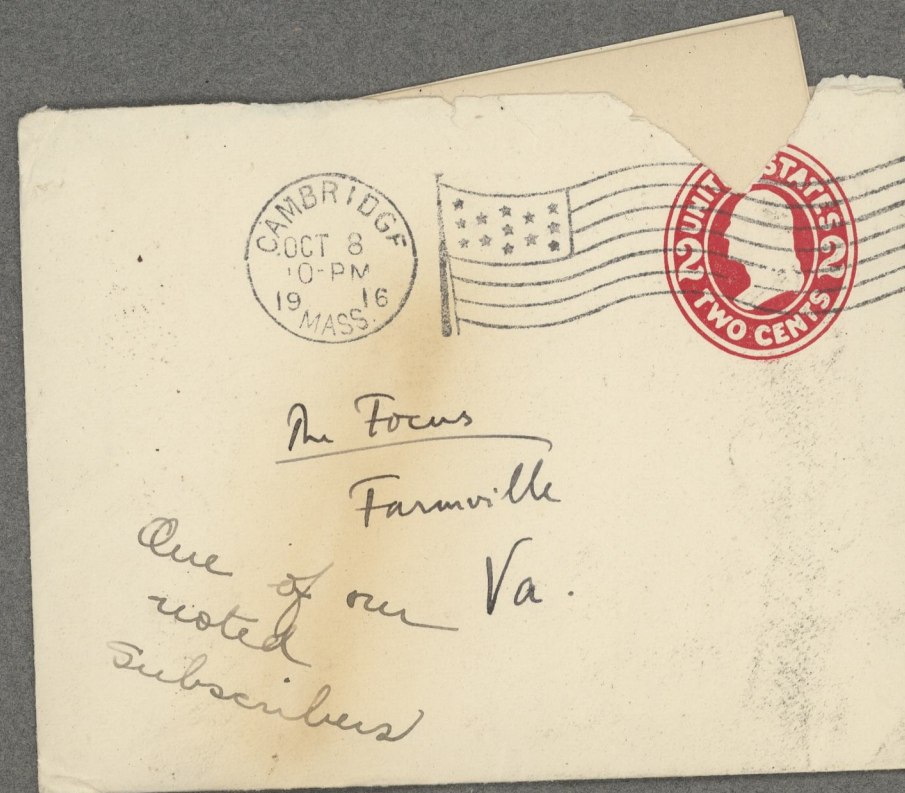 CAMBRIDGE
OCT 8
10-PM
19 16
MASS.
UNITED STATES
2 2
TWO CENTS
The Focus
Farmville
Va.
One of our
noted
subscribers